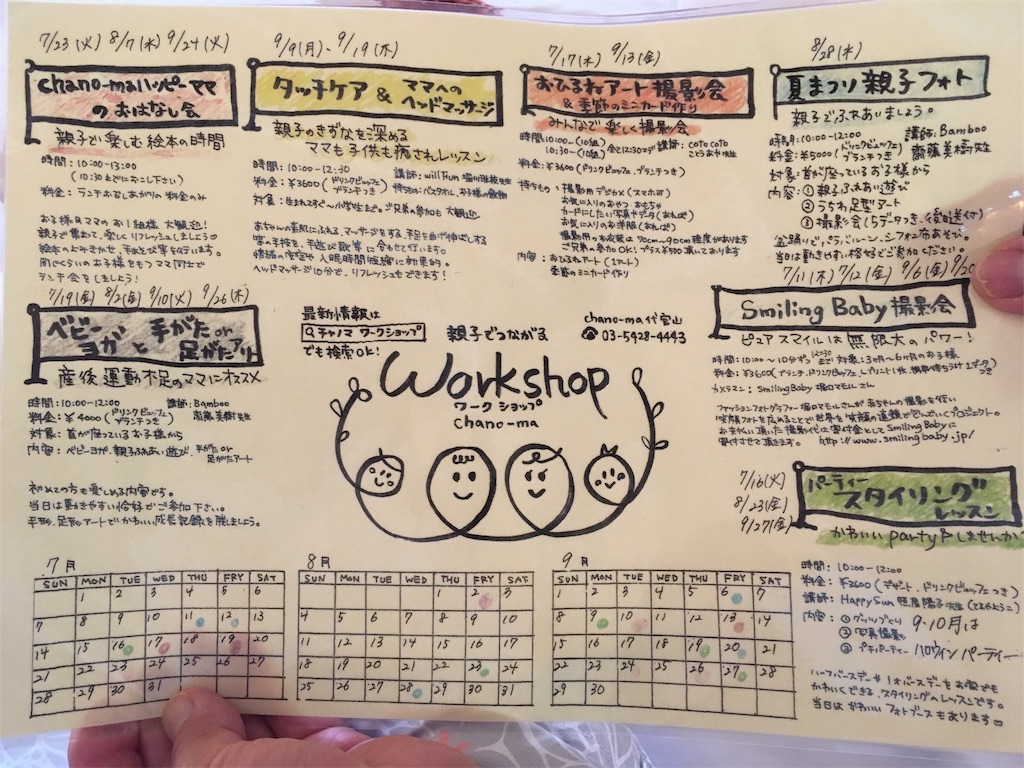 7/23(火) 8/7(水) 9/24(火)
chano-maハッピーママ
のおはなし会
親子で楽しむ絵本の時間
時間:10:00-13:00
(10:30までにおこし下さい)
料金:ランチおめしあがりの料金のみ
お子様&ママのお1組様 大歓迎!
親子で集まって、楽しくリフレッシュしましょう
絵本のよみきかせ、手あそび等を行います。
同じくらいのお子様をもつママ同士で
ランチ会をしましょう!
9/9(月)、9/19(木)
タッチケア & ママへの
ヘッドマッサージ
親子のきずなを深める
ママも子供も癒されレッスン
時間:10:30-12:30
料金:¥3600(ドリンクビュッフェ
ブランチつき)
講師:will Turn
持ちもの:バスタオル、お子様の飲物
対象:生まれてすぐ~小学生まで。ご兄弟の参加も大歓迎
赤ちゃんの素肌にふれる、マッサージをする、手足を曲げ伸ばしする
等の手技を、手遊び歌等に合わせて行います。
情緒の安定や入眠時間短縮に効果的。
ヘッドマッサージ10分で、リフレッシュもできます!
7/17(水) 9/13(金)
おひるねアート撮影会
&季節のミニカード作り
みんなで楽しく撮影会
時間:10:00-(10組)
10:30-(10組)全て12:30まで
講師:coto coto
料金:¥3600(ドリンクビュッフェ、ブランチつき)
持ちもの:撮影用デジカメ(スマホ可)
お気に入りのおやつ・おもちゃ
カードにしたい写真データ(あれば)
お気に入りのお洋服(あれば)
撮影用のお衣装は70cm~90cm程度があります
ご兄弟の参加OK!プラス¥500頂いております
内容:おひるねアート(1アート)
季節のミニカード作り
8/28(水)
夏まつり親子フォト
親子でふれあいましょう。
時間:10:00-12:00
講師:Bamboo
料金:¥5000(ドリンクビュッフェ
ブランチつき)
齋藤美樹先生
対象:首が座っているお子様から
内容:①親子ふれあい遊び
②うちわ足型アート
③撮影会(5データつき、後日送付)
盆踊りで、パラバルーン、シフォン布あそび。
当日は動きやすい恰好でご参加ください。
7/11(木) 7/12(金) 9/6(金) 9/20
Smiling Baby 撮影会
ピュアスマイルは無限大のパワー!
時間:10:00~10分ずつ 12:30まで 対象:3ヶ月~6ヶ月のお子様
料金:¥3600(ブランチ、ドリンクビュッフェ、Lプリント1枚、携帯待ちうけ1データつき)
カメラマン:SmilingBaby 堀口マモルさん
ファッションフォトグラファー堀口マモルさんが赤ちゃんの撮影を行い
笑顔フォトを広めることで世界を笑顔の連鎖で包んでいくプロジェクト。
お支払い頂いた撮影代は寄付金としてSmiling Babyに
寄付させて頂きます。 http://www.smilingbaby.jp/
7/19(金) 8/2(金) 9/10(火) 9/26(木)
ベビーヨガと手がたor
足がたアート
産後運動不足のママにオススメ
時間:10:00-12:00
講師:Bamboo
料金:¥4000(ドリンクビュッフェ
ブランチつき)
齋藤美樹先生
対象:首が座っているお子様から
内容:ベビーヨガ、親子ふれあい遊び、手がたor
足がたアート
初めての方も楽しめる内容です。
当日は動きやすい恰好でご参加下さい。
手形、足形アートでかわいい成長記録を残しましょう。
最新情報は
Q チャノマ ワークショップ
でも検索OK!
親子でつながる
chano-ma 代官山
☎03-5428-4443
Workshop
ワークショップ
chano-ma
7/16(火)
8/23(金)
9/27(金)
パーティー
スタイリング
レッスン
かわいいparty♪しませんか
時間:10:00-12:00
料金:¥3600(デザート、ドリンクビュッフェつき)
講師:HappySun 照屋陽子先生(てるやようこ)
内容:①グッズづくり
②写真撮影
③プチパーティー
9・10月は
ハロウィンパーティー
ハーフバースデーや1才バースデーをお家でも
かわいくできる、スタイリングへレッスンです。
当日はかわいいフォトブースもあります♡
7月
SUN MON TUE WED THU FRI SAT
1 2 3 4 5 6
7 8 9 10 11 12 13
14 15 16 17 18 19 20
21 22 23 24 25 26 27
28 29 30 31
8月
SUN MON TUE WED THU FRI SAT
1 2 3
4 5 6 7 8 9 10
11 12 13 14 15 16 17
18 19 20 21 22 23 24
25 26 27 28 29 30 31
9月
SUN MON TUE WED THU FRI SAT
1 2 3 4 5 6 7
8 9 10 11 12 13 14
15 16 17 18 19 20 21
22 23 24 25 26 27 28
29 30